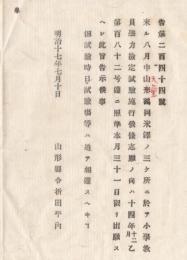 告第二百四十四號
來ル八月中山形鶴岡米澤ノ三ケ所ニ於テ小學教
員學力檢定試驗施行候條志願ノ向ハ十四年十二月乙
第百八十二號達ニ照準本月三十一日限リ出願ス
ヘシ此旨告示候事
但試驗時日試驗場等ハ追テ相達スヘキ
明治十七年七月十日
山形縣令折田平內